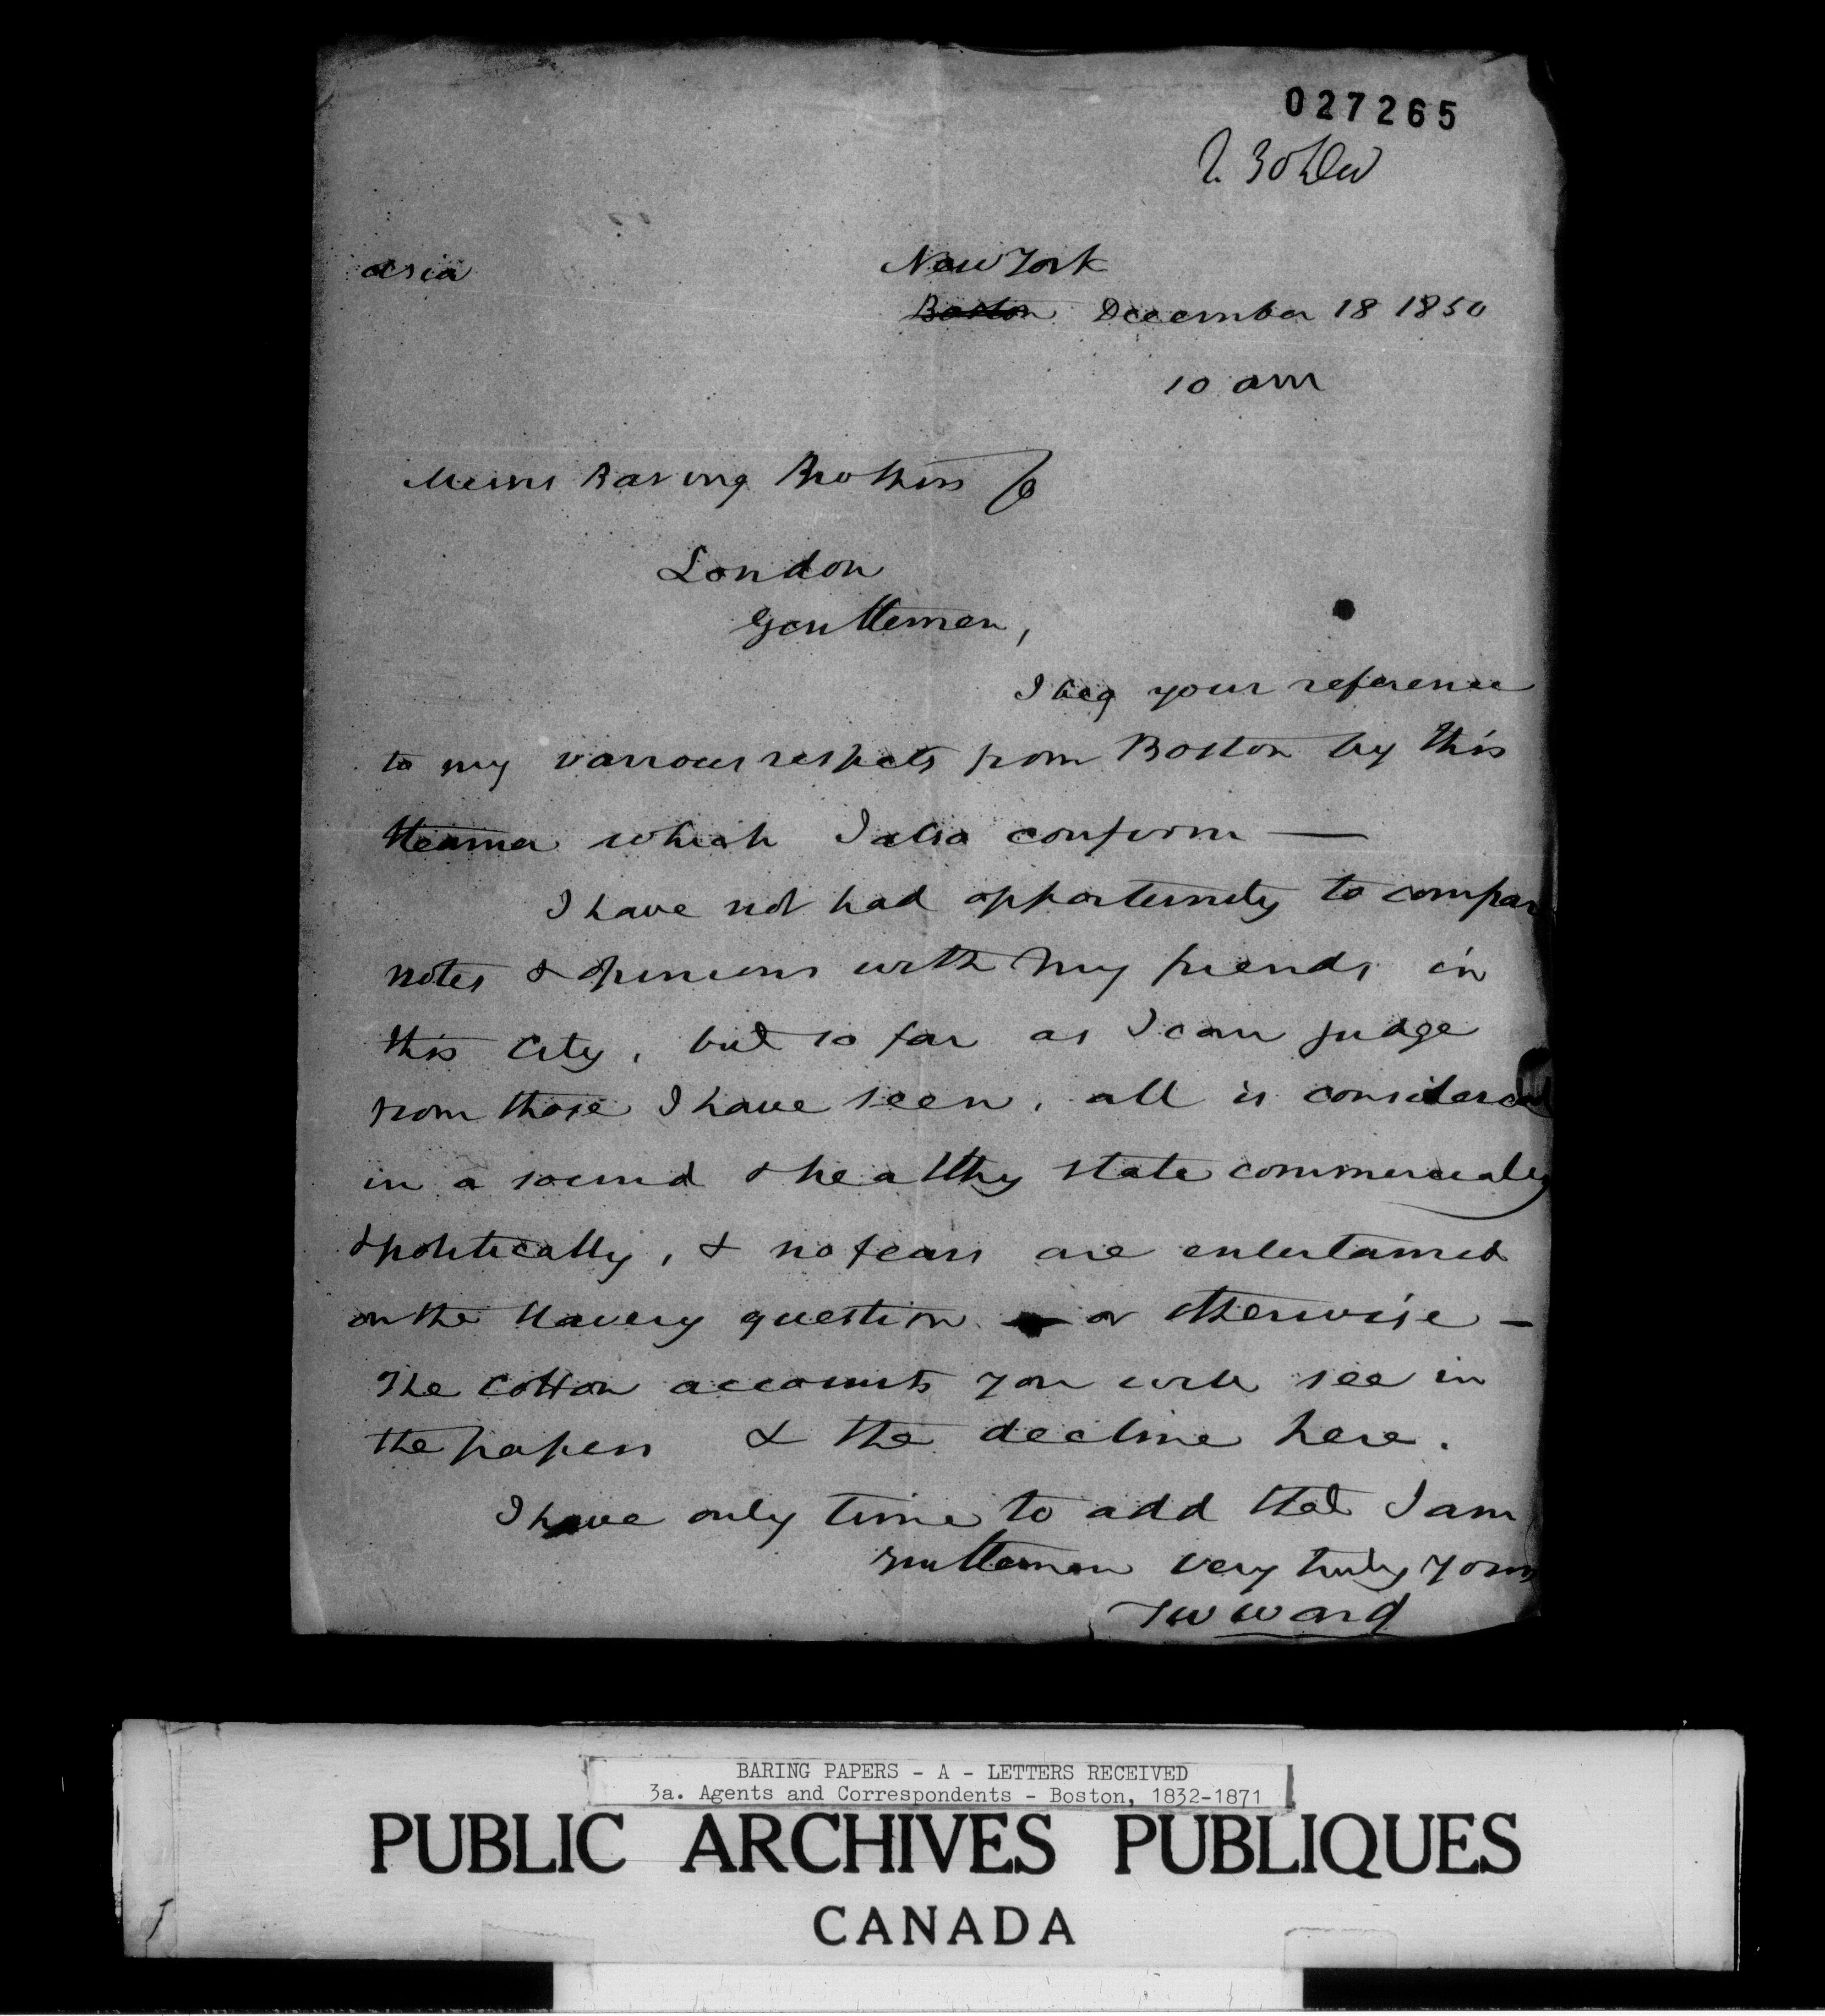 027265
R 30 Dec
Asia
New York
Boston December 18 1850
10 am
Messrs Baring Brothers Co
London
Gentlemen,
I beg your reference
to my various respects from Boston by this
steamer which I also confirm —
I have not had opportunity to compare
notes & opinions with my friends in
this City, but so far as I can judge
from those I have seen, all is considered
in a sound & healthy state commercially
& politically, & no fears are entertained
on the slavery question or otherwise —
The cotton accounts you will see in
the papers & the decline here.
I have only time to add that I am
Gentlemen very truly yours
TW Ward
BARING PAPERS - A - LETTERS RECEIVED
3a. Agents and Correspondents - Boston, 1832-1871
PUBLIC ARCHIVES PUBLIQUES
CANADA